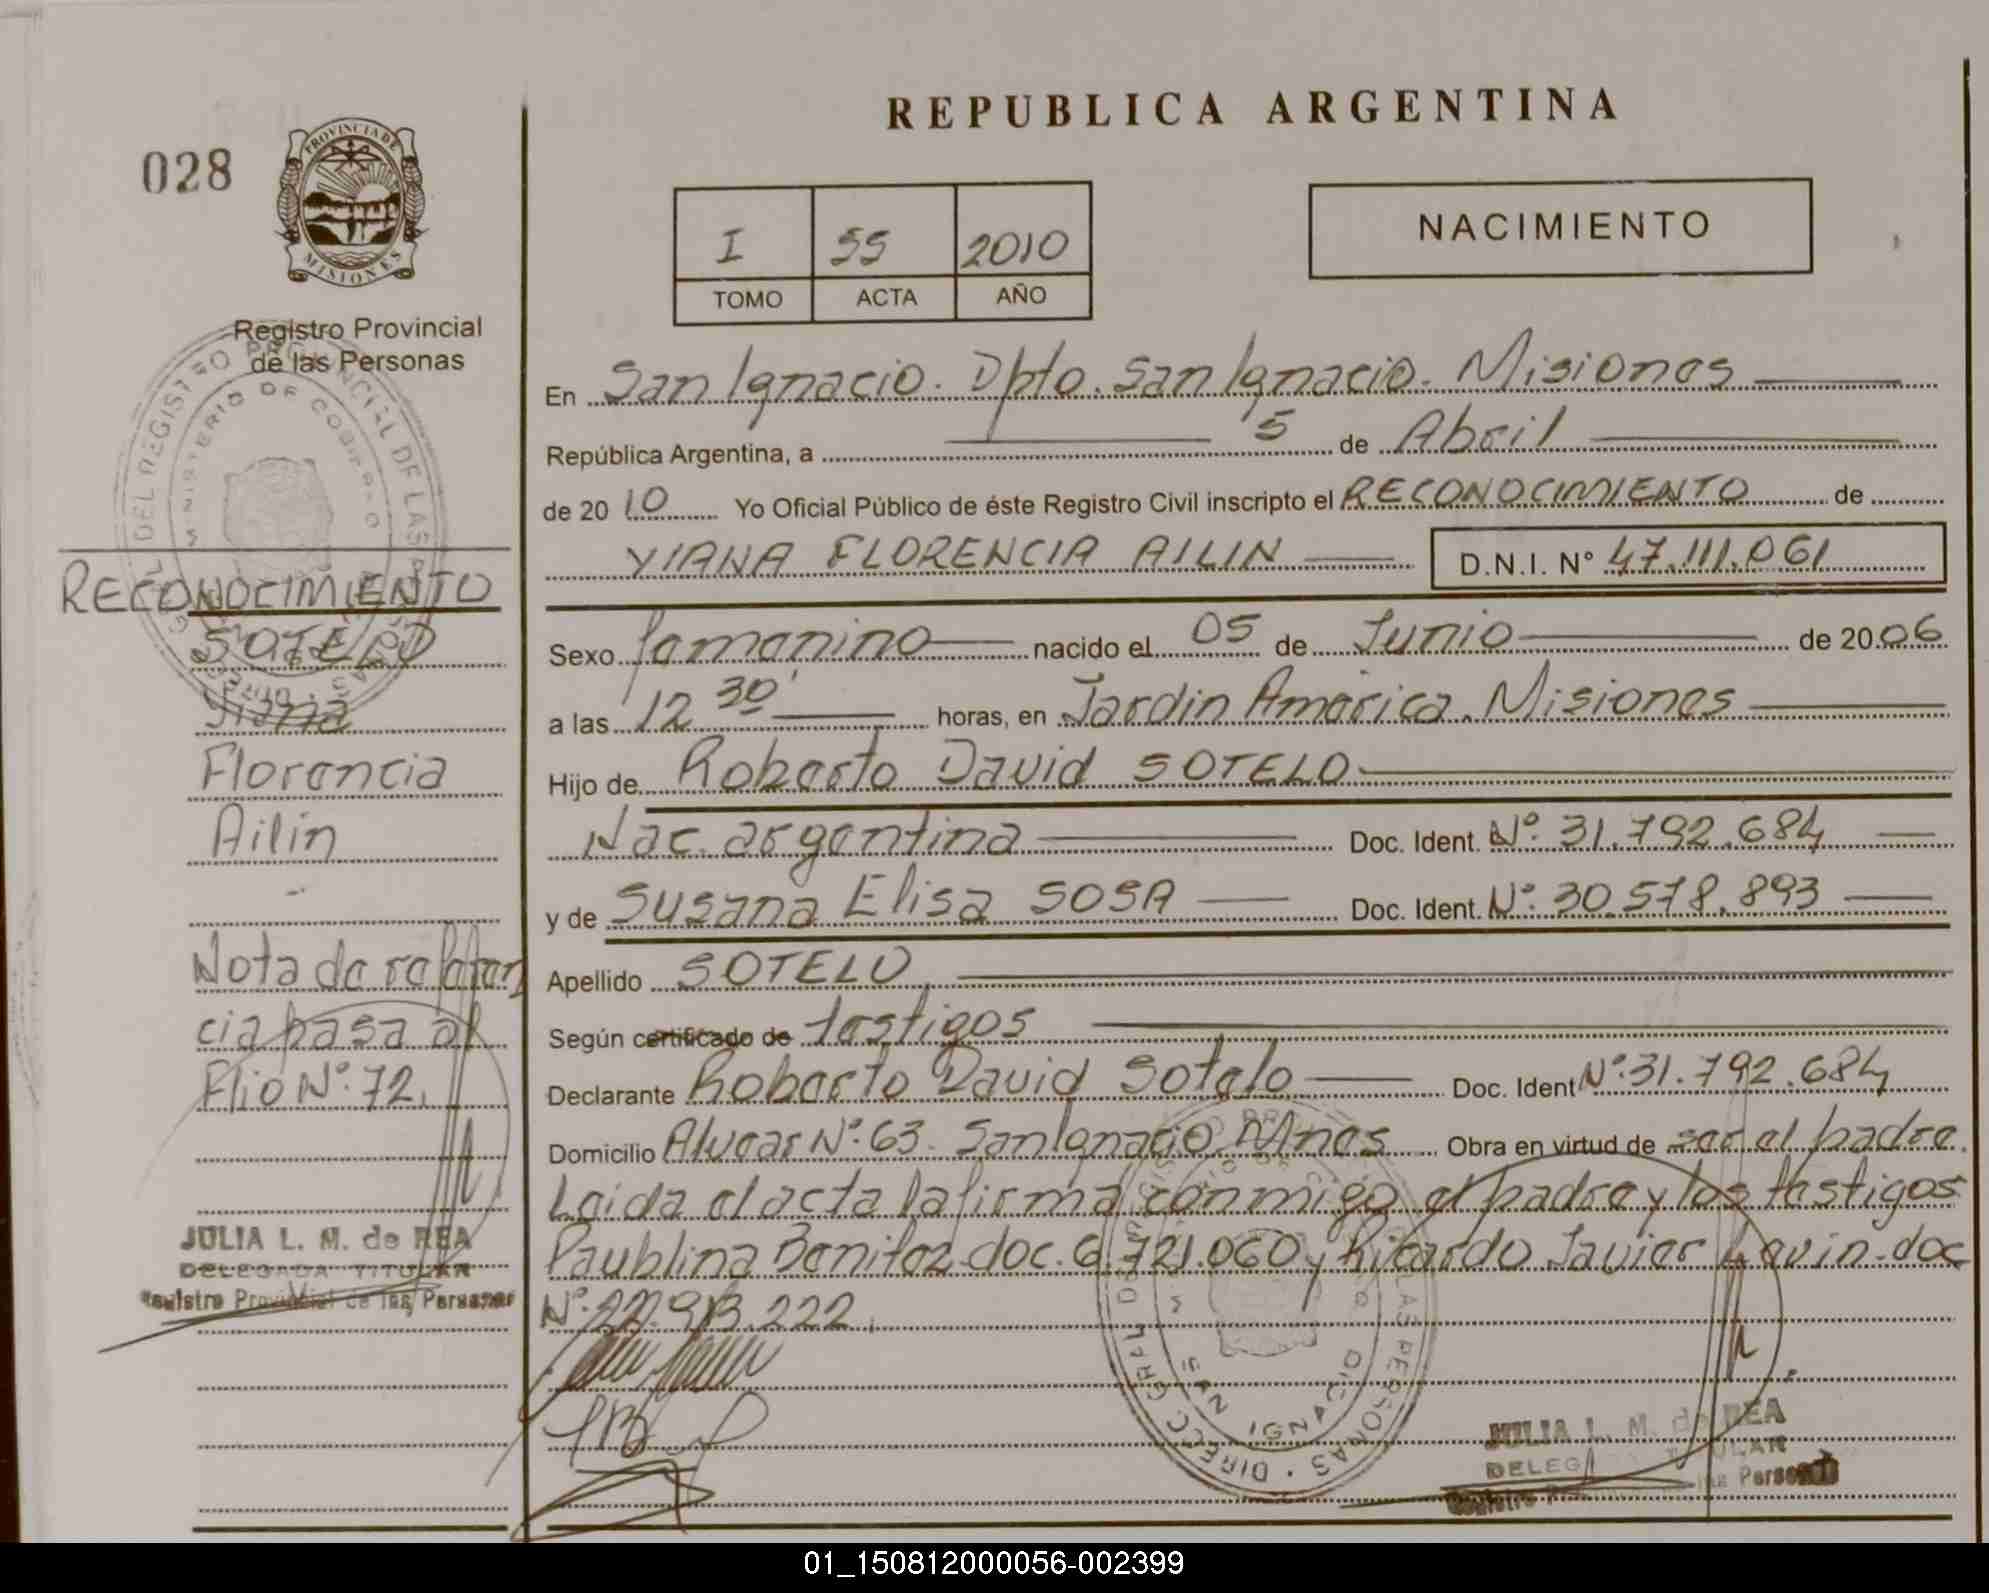 REPUBLICA ARGENTINA
028
PROVINCIA DE
MISIONES
Registro Provincial
de las Personas
RECONOCIMIENTO
SOTELO
Viana
Florencia
Ailin
Nota de referen
cia pasa al
Flio Nº: 72.
JULIA L. M. de REA
DELEGADA TITULAR
Registro Provincial de las Personas
I 55 2010
TOMO ACTA AÑO
NACIMIENTO
En San Ignacio. Dpto. San Ignacio. Misiones
República Argentina, a 5 de Abril
de 2010 Yo Oficial Público de éste Registro Civil inscripto el RECONOCIMIENTO de
VIANA FLORENCIA AILIN D.N.I. Nº 47.111.061
Sexo femenino nacido el 05 de Junio de 2006
a las 12 30' horas, en Jardin América. Misiones
Hijo de Roberto David SOTELO
Nac. argentina Doc. Ident. Nº: 31.792.684
y de Susana Elisa SOSA Doc. Ident. Nº: 30.578.893
Apellido SOTELO
Según certificado de testigos
Declarante Roberto David Sotelo Doc. Ident Nº: 31.792.684
Domicilio Alvear Nº: 63. San Ignacio Mnes Obra en virtud de ser el padre.
Leida el acta la firma conmigo el padre y los testigos
Paublina Benitez doc. 6.721.060 y Ricardo Javier doc
Nº: 222.
JULIA L. M. de REA
DELEGADA TITULAR
01_150812000056-002399